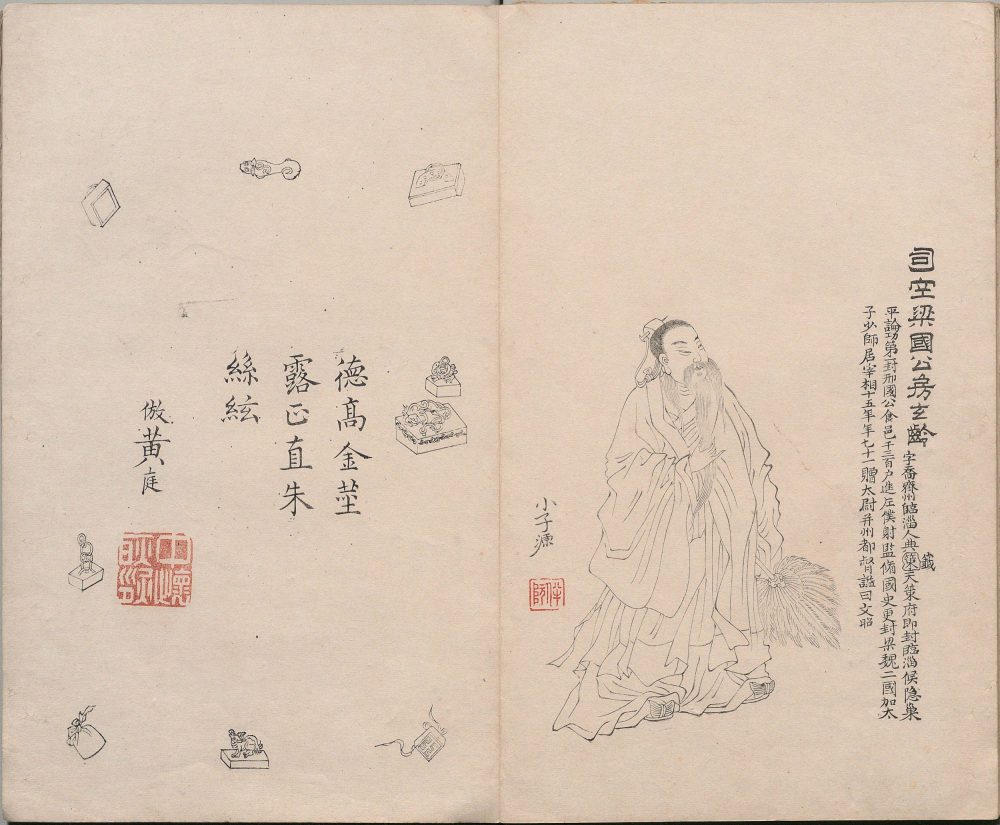 司空梁國公房玄齡
字喬齊州臨淄人典策天策府即封臨淄侯隱巢
籤
平論功第一封邢國公食邑千三百户進左僕射監脩國史更封梁魏二國加太
子少師居宰相十五年年七十一贈太尉并州都督諡曰文昭
小子源
伴阮
德高金莖
露正直朱
絲絃
倣黄庭